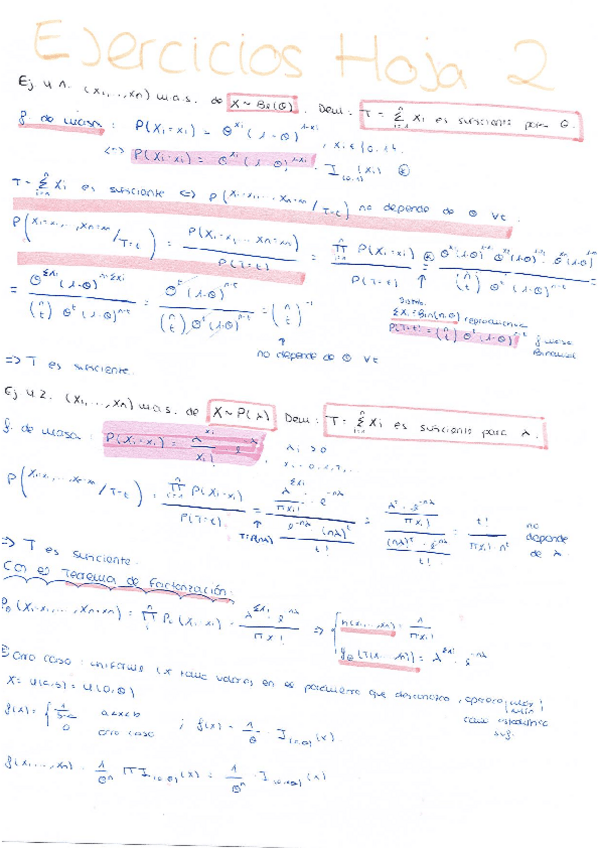 Ejercicios Hoja 2
Ej 4.1. (X₁,...,Xn) m.a.s. de X ~ Be(θ). Dem: T = Σᵢ₌₁ⁿ Xi es suficiente para θ.
f. de masa: P(Xi=xi) = θ^xi (1-θ)^(1-xi), xi ∈ {0,1}.
<-> P(Xi=xi) = θ^xi (1-θ)^(1-xi) · I_{0,1}(xi) ⊛
T = Σᵢ₌₁ⁿ Xi es suficiente <=> P(X₁=x₁,...,Xn=xn/T=t) no depende de θ ∀t.
P(X₁=x₁,...,Xn=xn/T=t) = P(X₁=x₁...Xn=xn)/P(T=t) = Πᵢ₌₁ⁿ P(Xi=xi)/P(T=t) =⊛ θ^x₁(1-θ)^(1-x₁) θ^x₂(1-θ)^(1-x₂) · θ^xn(1-θ)^(1-xn)/(n t) θ^t (1-θ)^(n-t) =
= θ^Σxi (1-θ)^(n-Σxi)/(n t) θ^t (1-θ)^(n-t) = θ^t (1-θ)^(n-t)/(n t) θ^t (1-θ)^(n-t) = (n t)^-1
↑
no depende de θ ∀t
ΣXi = Bin(n,θ) reproductiva
P(T=t) = (n t) θ^t (1-θ)^(n-t) f masa Binomial
=> T es suficiente.
Ej 4.2. (X₁,...,Xn) m.a.s. de X ~ P(λ) Dem: T = Σᵢ₌₁ⁿ Xi es suficiente para λ.
f. de masa: P(Xi=xi) = λ^xi/xi! e^-λ, λ > 0
xi = 0,1,2,...
P(X₁=x₁,...,Xn=xn/T=t) = Πᵢ₌₁ⁿ P(Xi=xi)/P(T=t) = λ^Σxi/Πxi! · e^-nλ / e^-nλ (nλ)^t/t! = λ^t · e^-nλ/Πxi! / (nλ)^t · e^-nλ/t! = t!/Πxi! · n^t no depende de λ.
↑
T≡P(nλ)
=> T es suficiente.
Con el Teorema de Factorización:
Pθ(X₁=x₁,...,Xn=xn) = Πᵢ₌₁ⁿ P(Xi=xi) = λ^Σxi · e^-nλ/Πxi! => { h(x₁,...,xn) = 1/Πxi!
gθ(T(x₁...xn)) = λ^Σxi · e^-nλ
Otro caso: uniforme (X toma valores en el parámetro que desconozco, aparece máx | mín como estadístico suf.
X = U(a,b) = U(0,θ)
f(x) = { 1/b-a a<x<b
0 otro caso ; f(x) = 1/θ · I_(0,θ)(x).
f(x₁,...,xn) = 1/θ^n Π I_(0,θ)(x) = 1/θ^n · I_(0,θ)(x)